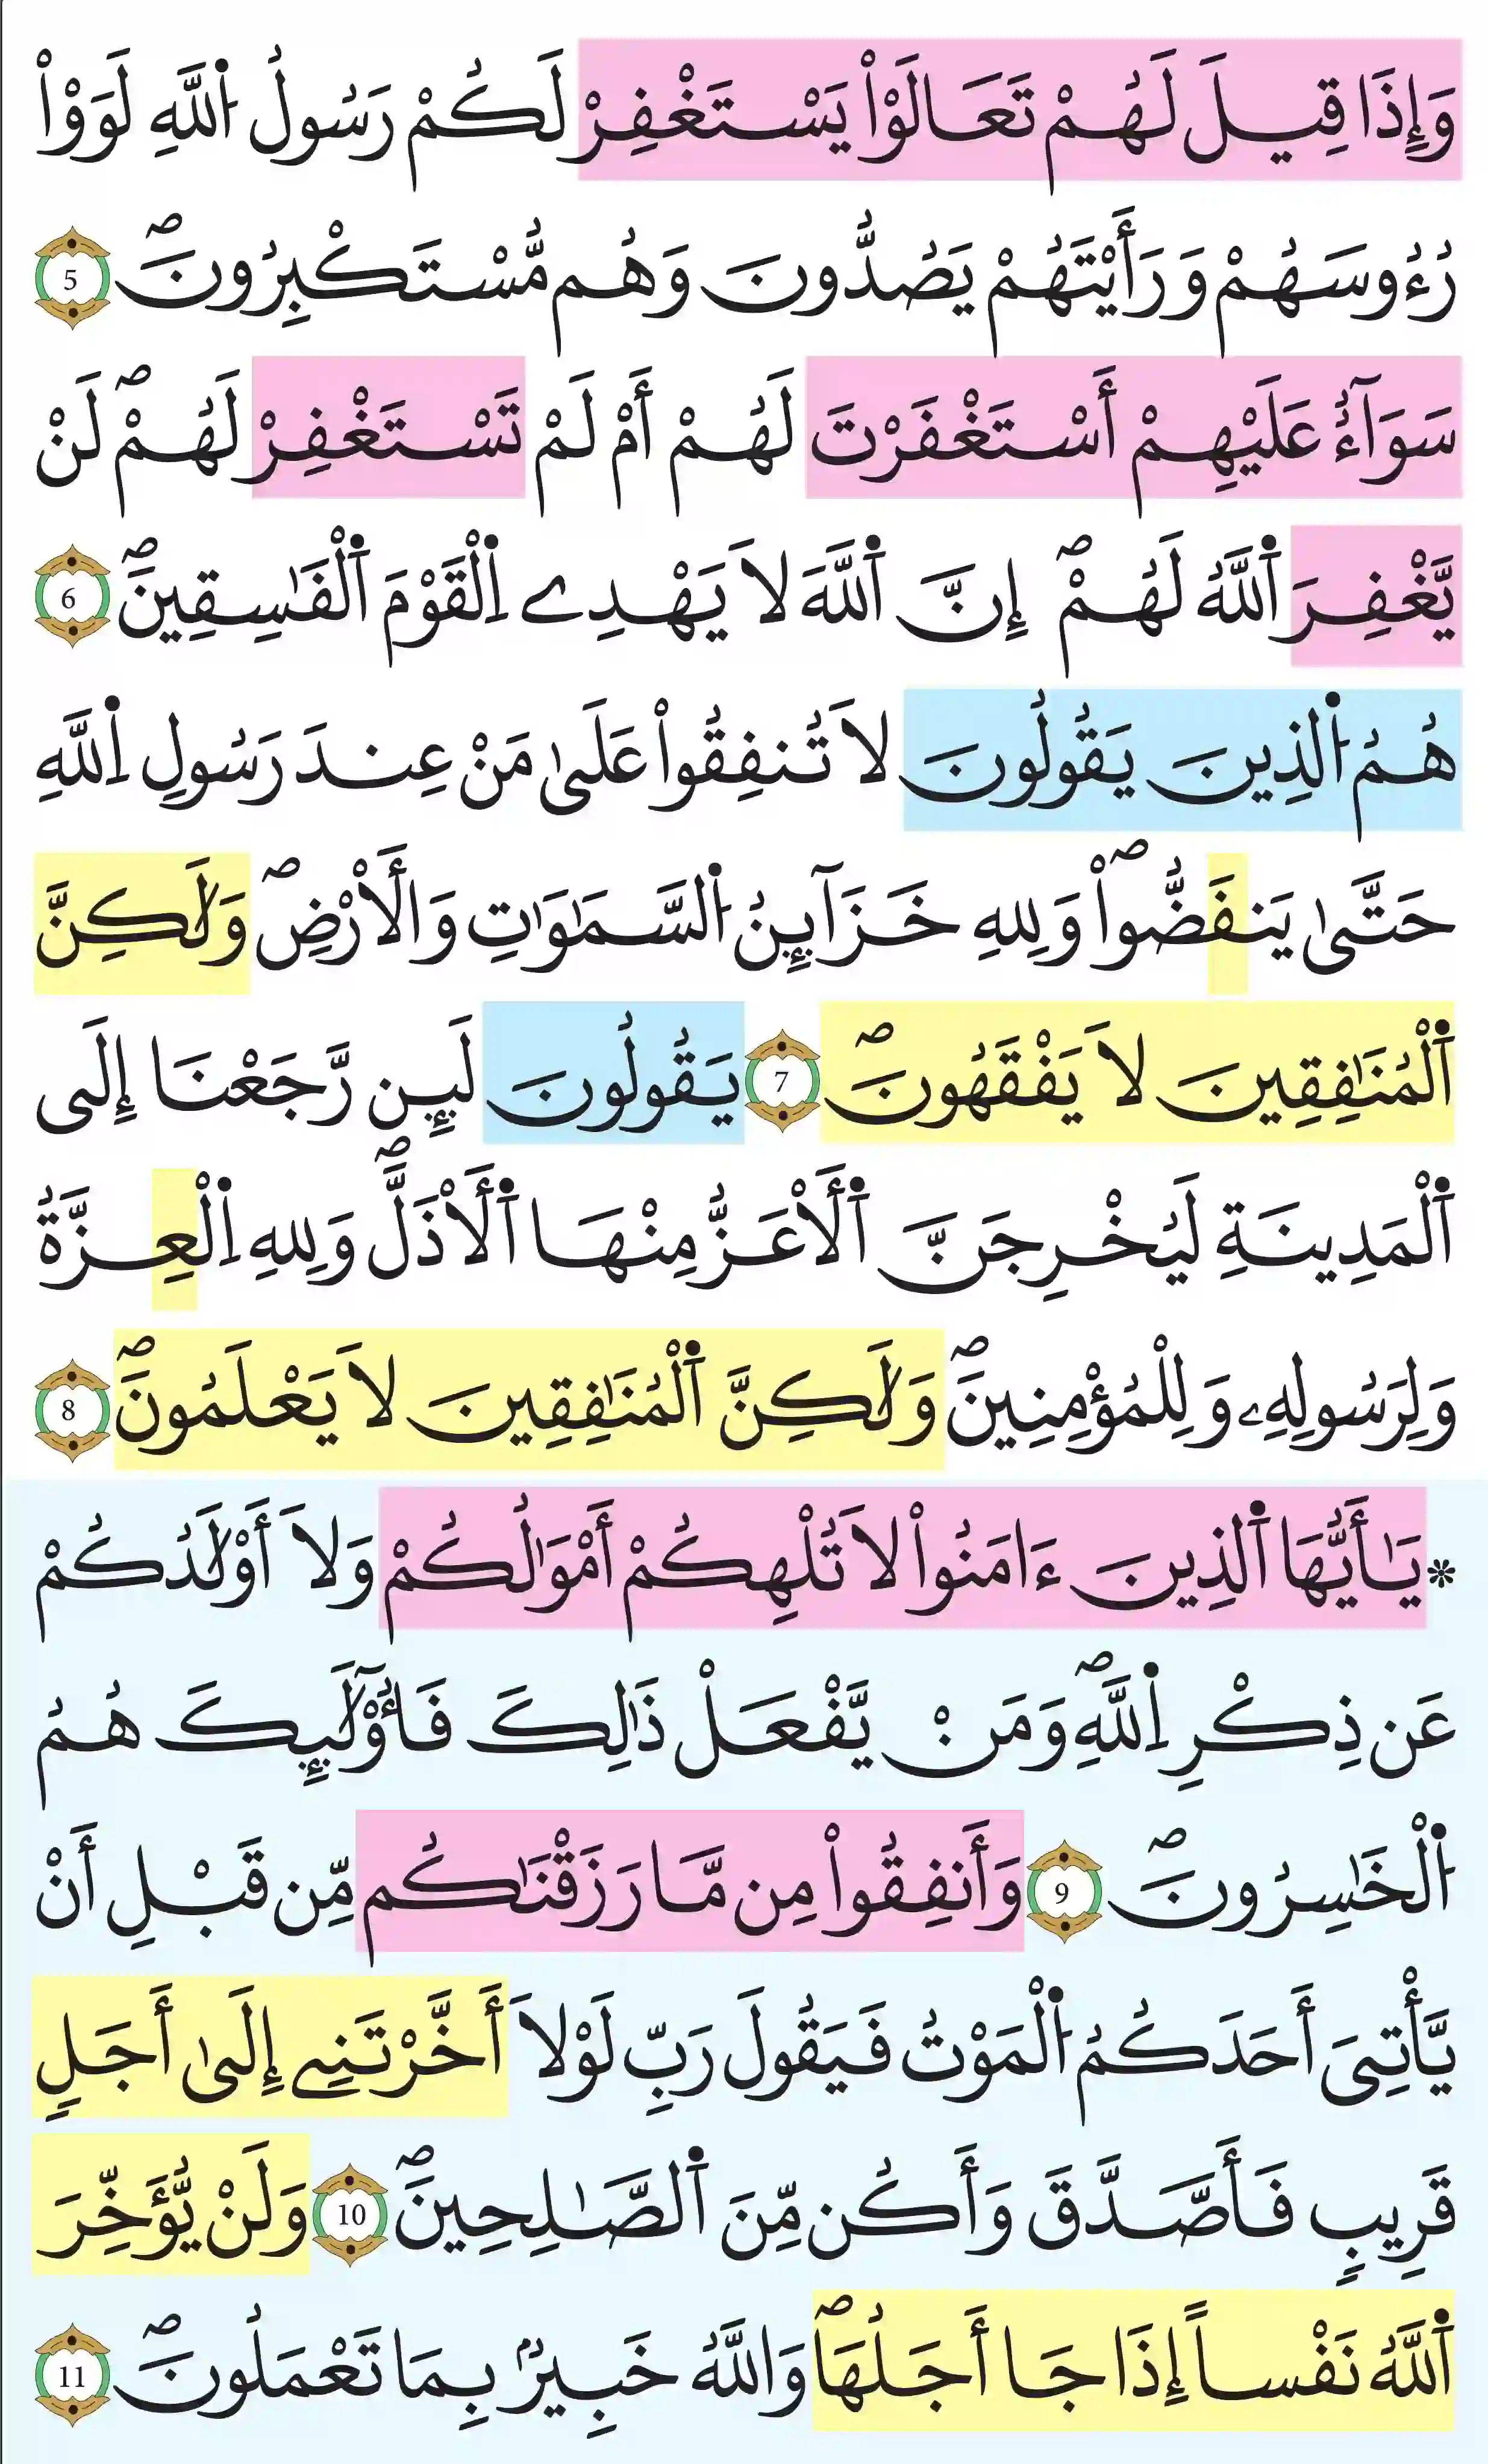 وَإِذَا قِيلَ لَهُمْ تَعَالَوْاْ يَسْتَغْفِرْ لَكُمْ رَسُولُ اُ۬للَّهِ لَوَوْاْ
رُءُوسَهُمْ وَرَأَيْتَهُمْ يَصُدُّونَ وَهُم مُّسْتَكْبِرُونَۖ 5
سَوَآءٌ عَلَيْهِمْ أَسْتَغْفَرْتَ لَهُمْ أَمْ لَمْ تَسْتَغْفِرْ لَهُمْۖ لَنْ
يَّغْفِرَ اَ۬للَّهُ لَهُمْۖ إِنَّ اَ۬للَّهَ لَا يَهْدِے اِ۬لْقَوْمَ اَ۬لْفَٰسِقِينَۖ 6
هُمُ اُ۬لذِينَ يَقُولُونَ لَا تُنفِقُواْ عَلَىٰ مَنْ عِندَ رَسُولِ اِ۬للَّهِ
حَتَّىٰ يَنفَضُّواْۖ وَلِلهِ خَزَآئِنُ اُ۬لسَّمَٰوَٰتِ وَالَارْضِۖ وَلَٰكِنَّ
اَ۬لْمُنَٰفِقِينَ لَا يَفْقَهُونَۖ 7 يَقُولُونَ لَئِن رَّجَعْنَا إِلَى
اَ۬لْمَدِينَةِ لَيُخْرِجَنَّ اَ۬لَاعَزُّ مِنْهَا اَ۬لَاذَلَّۖ وَلِلهِ اِ۬لْعِزَّةُ
وَلِرَسُولِهِۦ وَلِلْمُؤْمِنِينَۖ وَلَٰكِنَّ اَ۬لْمُنَٰفِقِينَ لَا يَعْلَمُونَۖ 8
* يَٰأَيُّهَا اَ۬لذِينَ ءَامَنُواْ لَا تُلْهِكُمْ أَمْوَٰلُكُمْ وَلَا أَوْلَٰدُكُمْ
عَن ذِكْرِ اِ۬للَّهِۖ وَمَنْ يَّفْعَلْ ذَٰلِكَ فَأُوْلَٰٓئِكَ هُمُ
اُ۬لْخَٰسِرُونَۖ 9 وَأَنفِقُواْ مِن مَّا رَزَقْنَٰكُم مِّن قَبْلِ أَنْ
يَّأْتِىَ أَحَدَكُمُ اُ۬لْمَوْتُ فَيَقُولَ رَبِّ لَوْلَا أَخَّرْتَنِے إِلَىٰ أَجَلٍ
قَرِيبٍ فَأَصَّدَّقَ وَأَكُن مِّنَ اَ۬لصَّٰلِحِينَۖ 10 وَلَنْ يُّؤَخِّرَ
اَ۬للَّهُ نَفْساً إِذَا جَا أَجَلُهَاۖ وَاللَّهُ خَبِيرُۢ بِمَا تَعْمَلُونَۖ 11